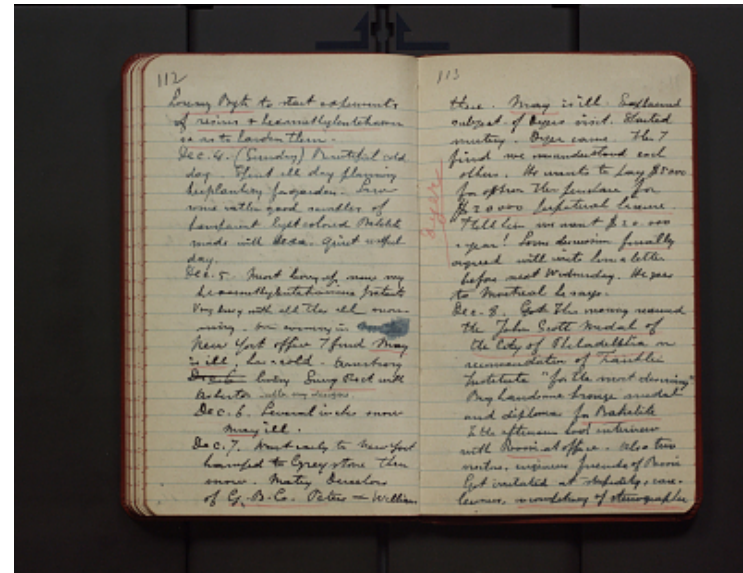 112
Lowery Byk to start experiments
of resins + hexamethylentetramin
so as to harden them.
Dec. 4. (Sunday) Beautiful cold
day. Spent all day planning
for garden. Saw
some rather good samples of
light colored Bakelite
made with quiet restful
day.
Dec. 5. Most busy of now my
hexamethylentetramine patents
Very busy with all this all
in
New York office I find May
is ill has cold.
Sung Rect with

Dec. 6. Several inches snow
May ill.
Dec. 7. Went early to New York
to Greystone thru
snow. Meeting Directors
of G. B. Co. Peters + William
113
there. May is ill. Explained
subject of Dyers visit. Started
meeting. Dyer came. Then I
find we misunderstood each
others. He wants to pay $5000
for option then purchase for
$20000 perpetual license.
I tell him we want $20.000
a year! Some discussion finally
agreed will write him a letter
before next Wednesday. He goes
to Montreal he says.
Dyer
Dec. 8. This morning received
the John Scott Medal of
the City of Philadelphia on
recommendation of Franklin
Institute "for the most deserving"
Big handsome bronze medal
and diploma for Bakelite
In the afternoon had interview
with Rossi at office. Also two
engineers friends of Rossi
Got irritated at stupidity, care-
lessness, of stenographer